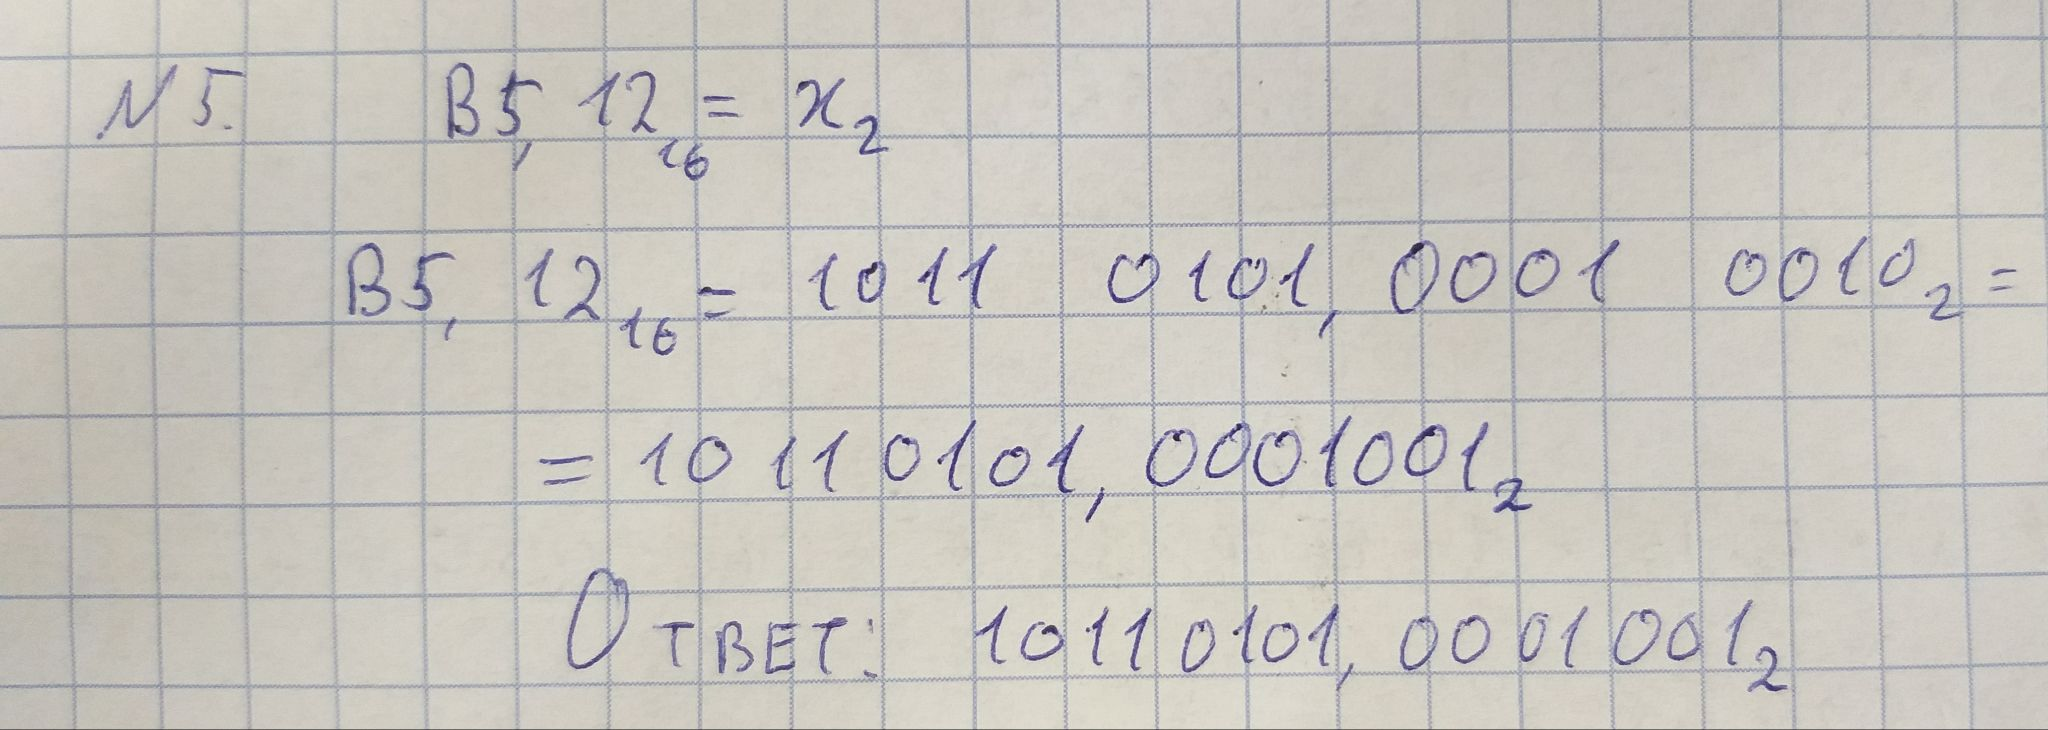 N 5. B5,12₁₆ = x₂
B5,12₁₆ = 1011 0101,0001 0010₂ =
= 10110101,0001001₂
Ответ: 10110101,0001001₂